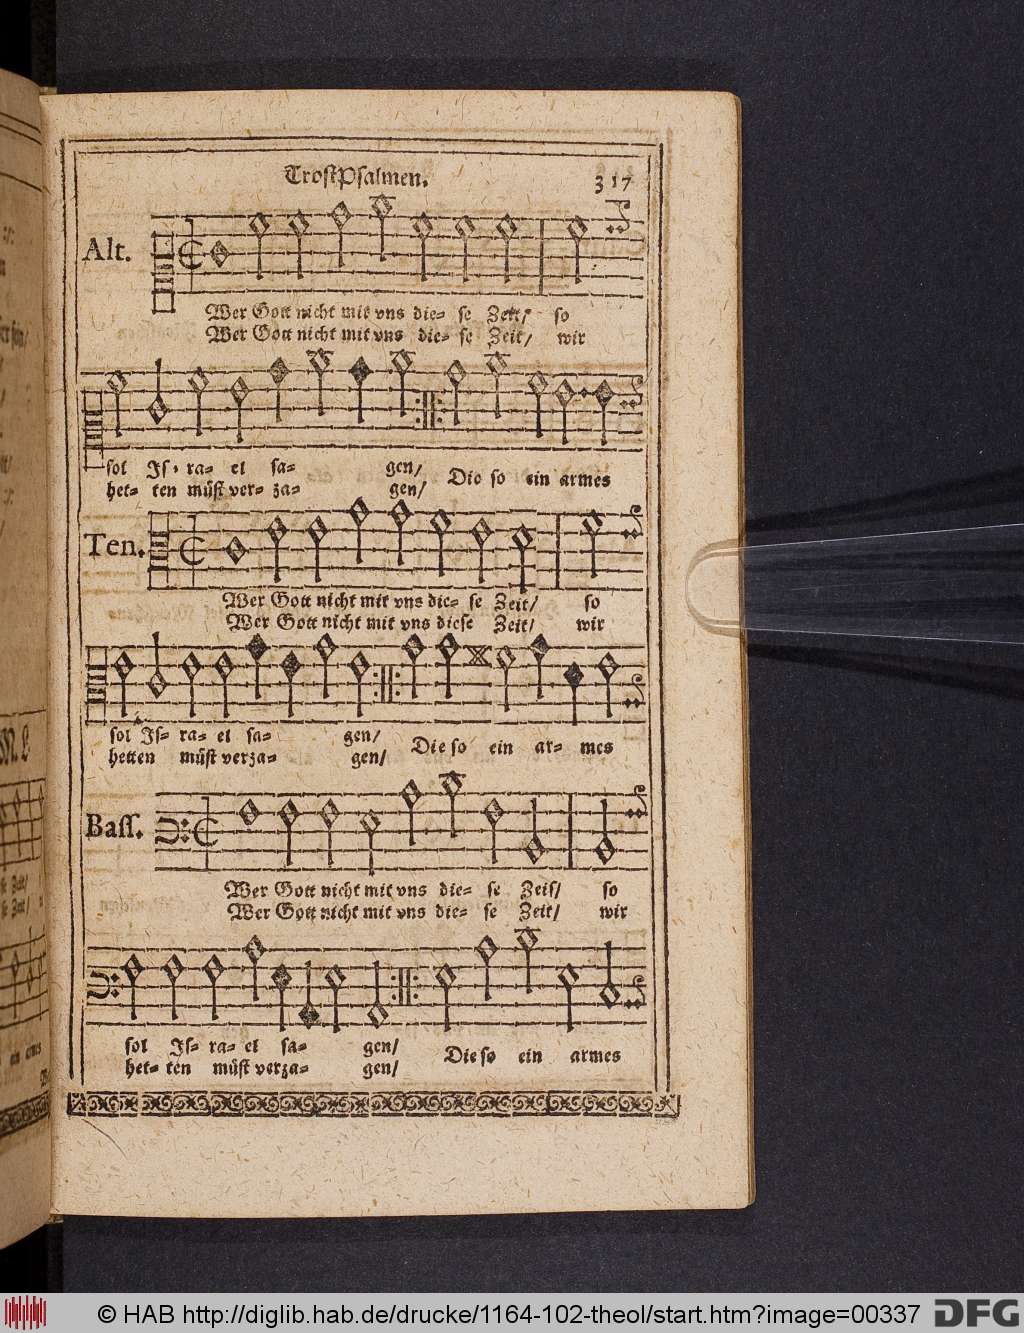 TrostPsalmen.
317
Alt.
Wer Gott nicht mit vns die- se Zeit/ so
Wer Gott nicht mit vns die- se Zeit/ wir
sol Is- ra- el sa- gen/ Die so ein armes
het- ten müst ver- za- gen/
Ten.
Wer Gott nicht mit vns die- se Zeit/ so
Wer Gott nicht mit vns diese Zeit/ wir
sol Is- ra- el sa- gen/ Die so ein ar- mes
hetten müst verza- gen/
Bass.
Wer Gott nicht mit vns die- se Zeit/ so
Wer Gott nicht mit vns die- se Zeit/ wir
sol Is- ra- el sa- gen/ Die so ein armes
het- ten müst verza- gen/
© HAB http://diglib.hab.de/drucke/1164-102-theol/start.htm?image=00337
DFG